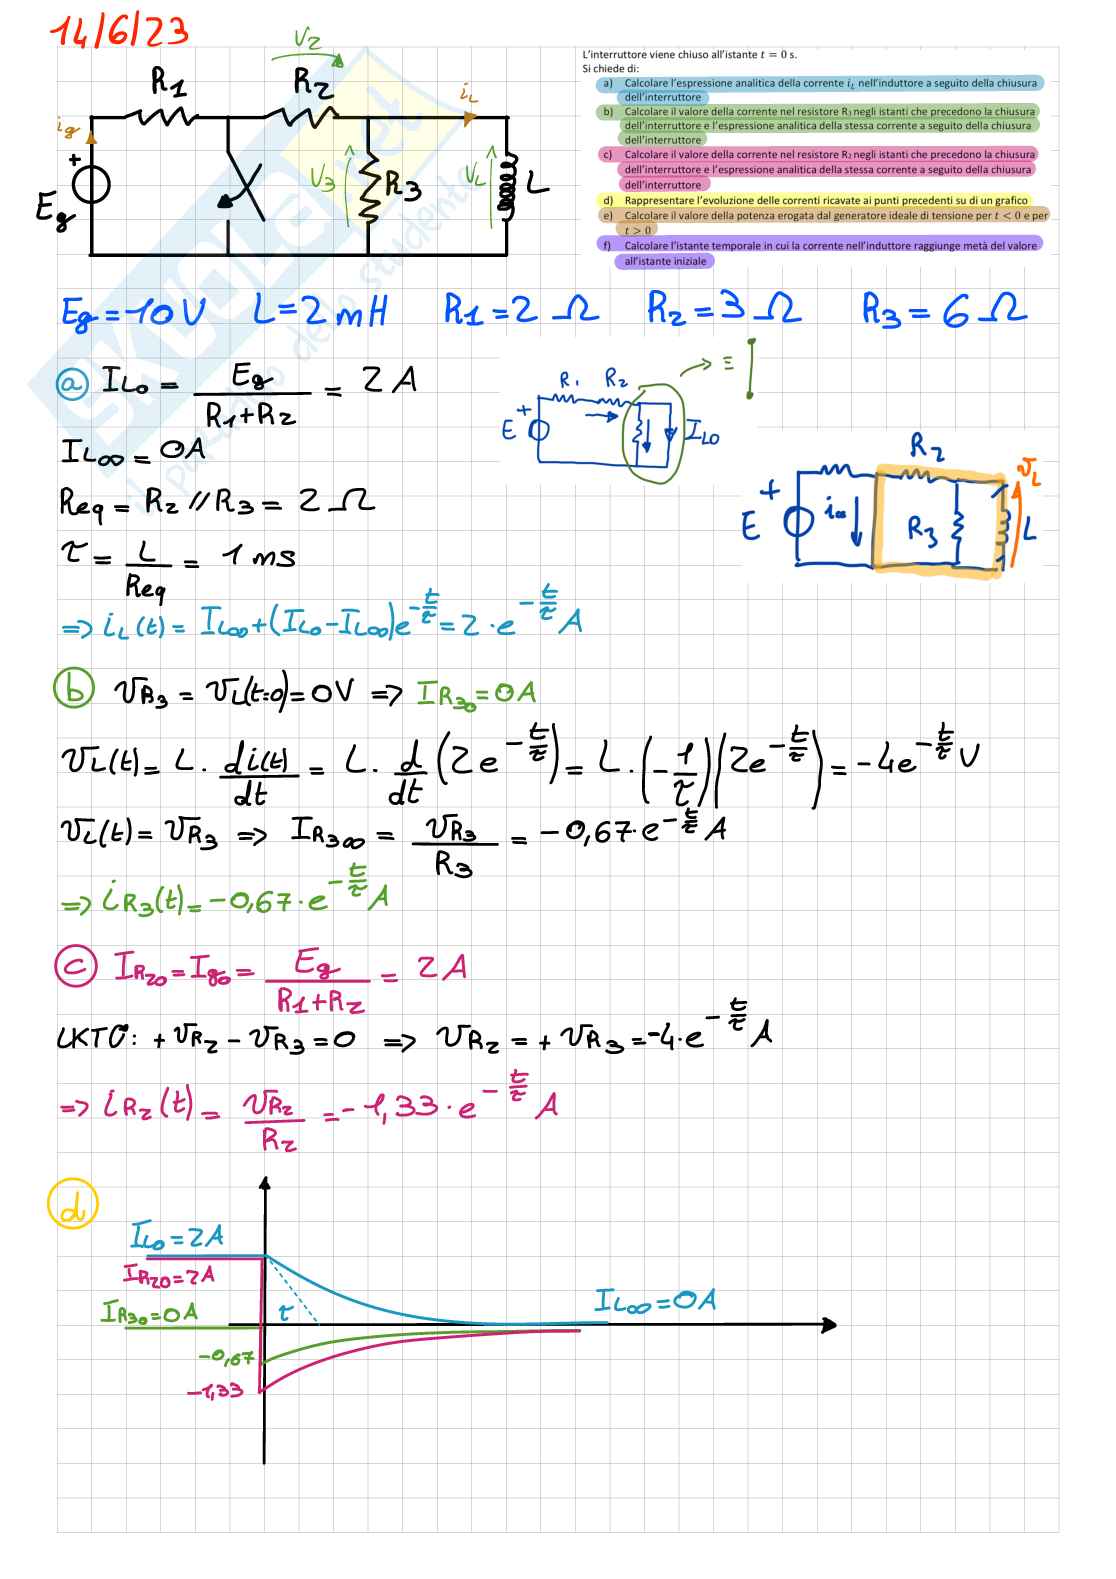 14/6/23
L'interruttore viene chiuso all'istante t = 0 s.
Si chiede di:
a) Calcolare l'espressione analitica della corrente i_L nell'induttore a seguito della chiusura
dell'interruttore
b) Calcolare il valore della corrente nel resistore R3 negli istanti che precedono la chiusura
dell'interruttore e l'espressione analitica della stessa corrente a seguito della chiusura
dell'interruttore
c) Calcolare il valore della corrente nel resistore R2 negli istanti che precedono la chiusura
dell'interruttore e l'espressione analitica della stessa corrente a seguito della chiusura
dell'interruttore
d) Rappresentare l'evoluzione delle correnti ricavate ai punti precedenti su di un grafico
e) Calcolare il valore della potenza erogata dal generatore ideale di tensione per t < 0 e per
t > 0
f) Calcolare l'istante temporale in cui la corrente nell'induttore raggiunge metà del valore
all'istante iniziale
V2
R1 R2 iL
ig
+
Eg V3 R3 VL L
Eg=10V L=2mH R1=2Ω R2=3Ω R3=6Ω
a) IL0 = Eg/(R1+R2) = 2A
R1 R2 → ≡
+
E IL0
IL∞ = 0A
Req = R2//R3 = 2Ω
R2 vL
+
E i∞ R3 L
τ = L/Req = 1ms
=> iL(t) = IL∞+(IL0-IL∞)e^(-t/τ) = 2·e^(-t/τ) A
b) vR3 = vL(t=0) = 0V => IR30 = 0A
vL(t) = L · di(t)/dt = L · d/dt (2e^(-t/τ)) = L·(-1/τ)(2e^(-t/τ)) = -4e^(-t/τ) V
vL(t) = vR3 => IR3∞ = vR3/R3 = -0,67·e^(-t/τ) A
=> iR3(t) = -0,67·e^(-t/τ) A
c) IR20 = Ig0 = Eg/(R1+R2) = 2A
LKT0: +vR2 - vR3 = 0 => vR2 = + vR3 = -4·e^(-t/τ) A
=> iR2(t) = vR2/R2 = -1,33·e^(-t/τ) A
d)
IL0 = 2A
IR20=2A
IR30=0A τ IL∞=0A
-0,67
-1,33